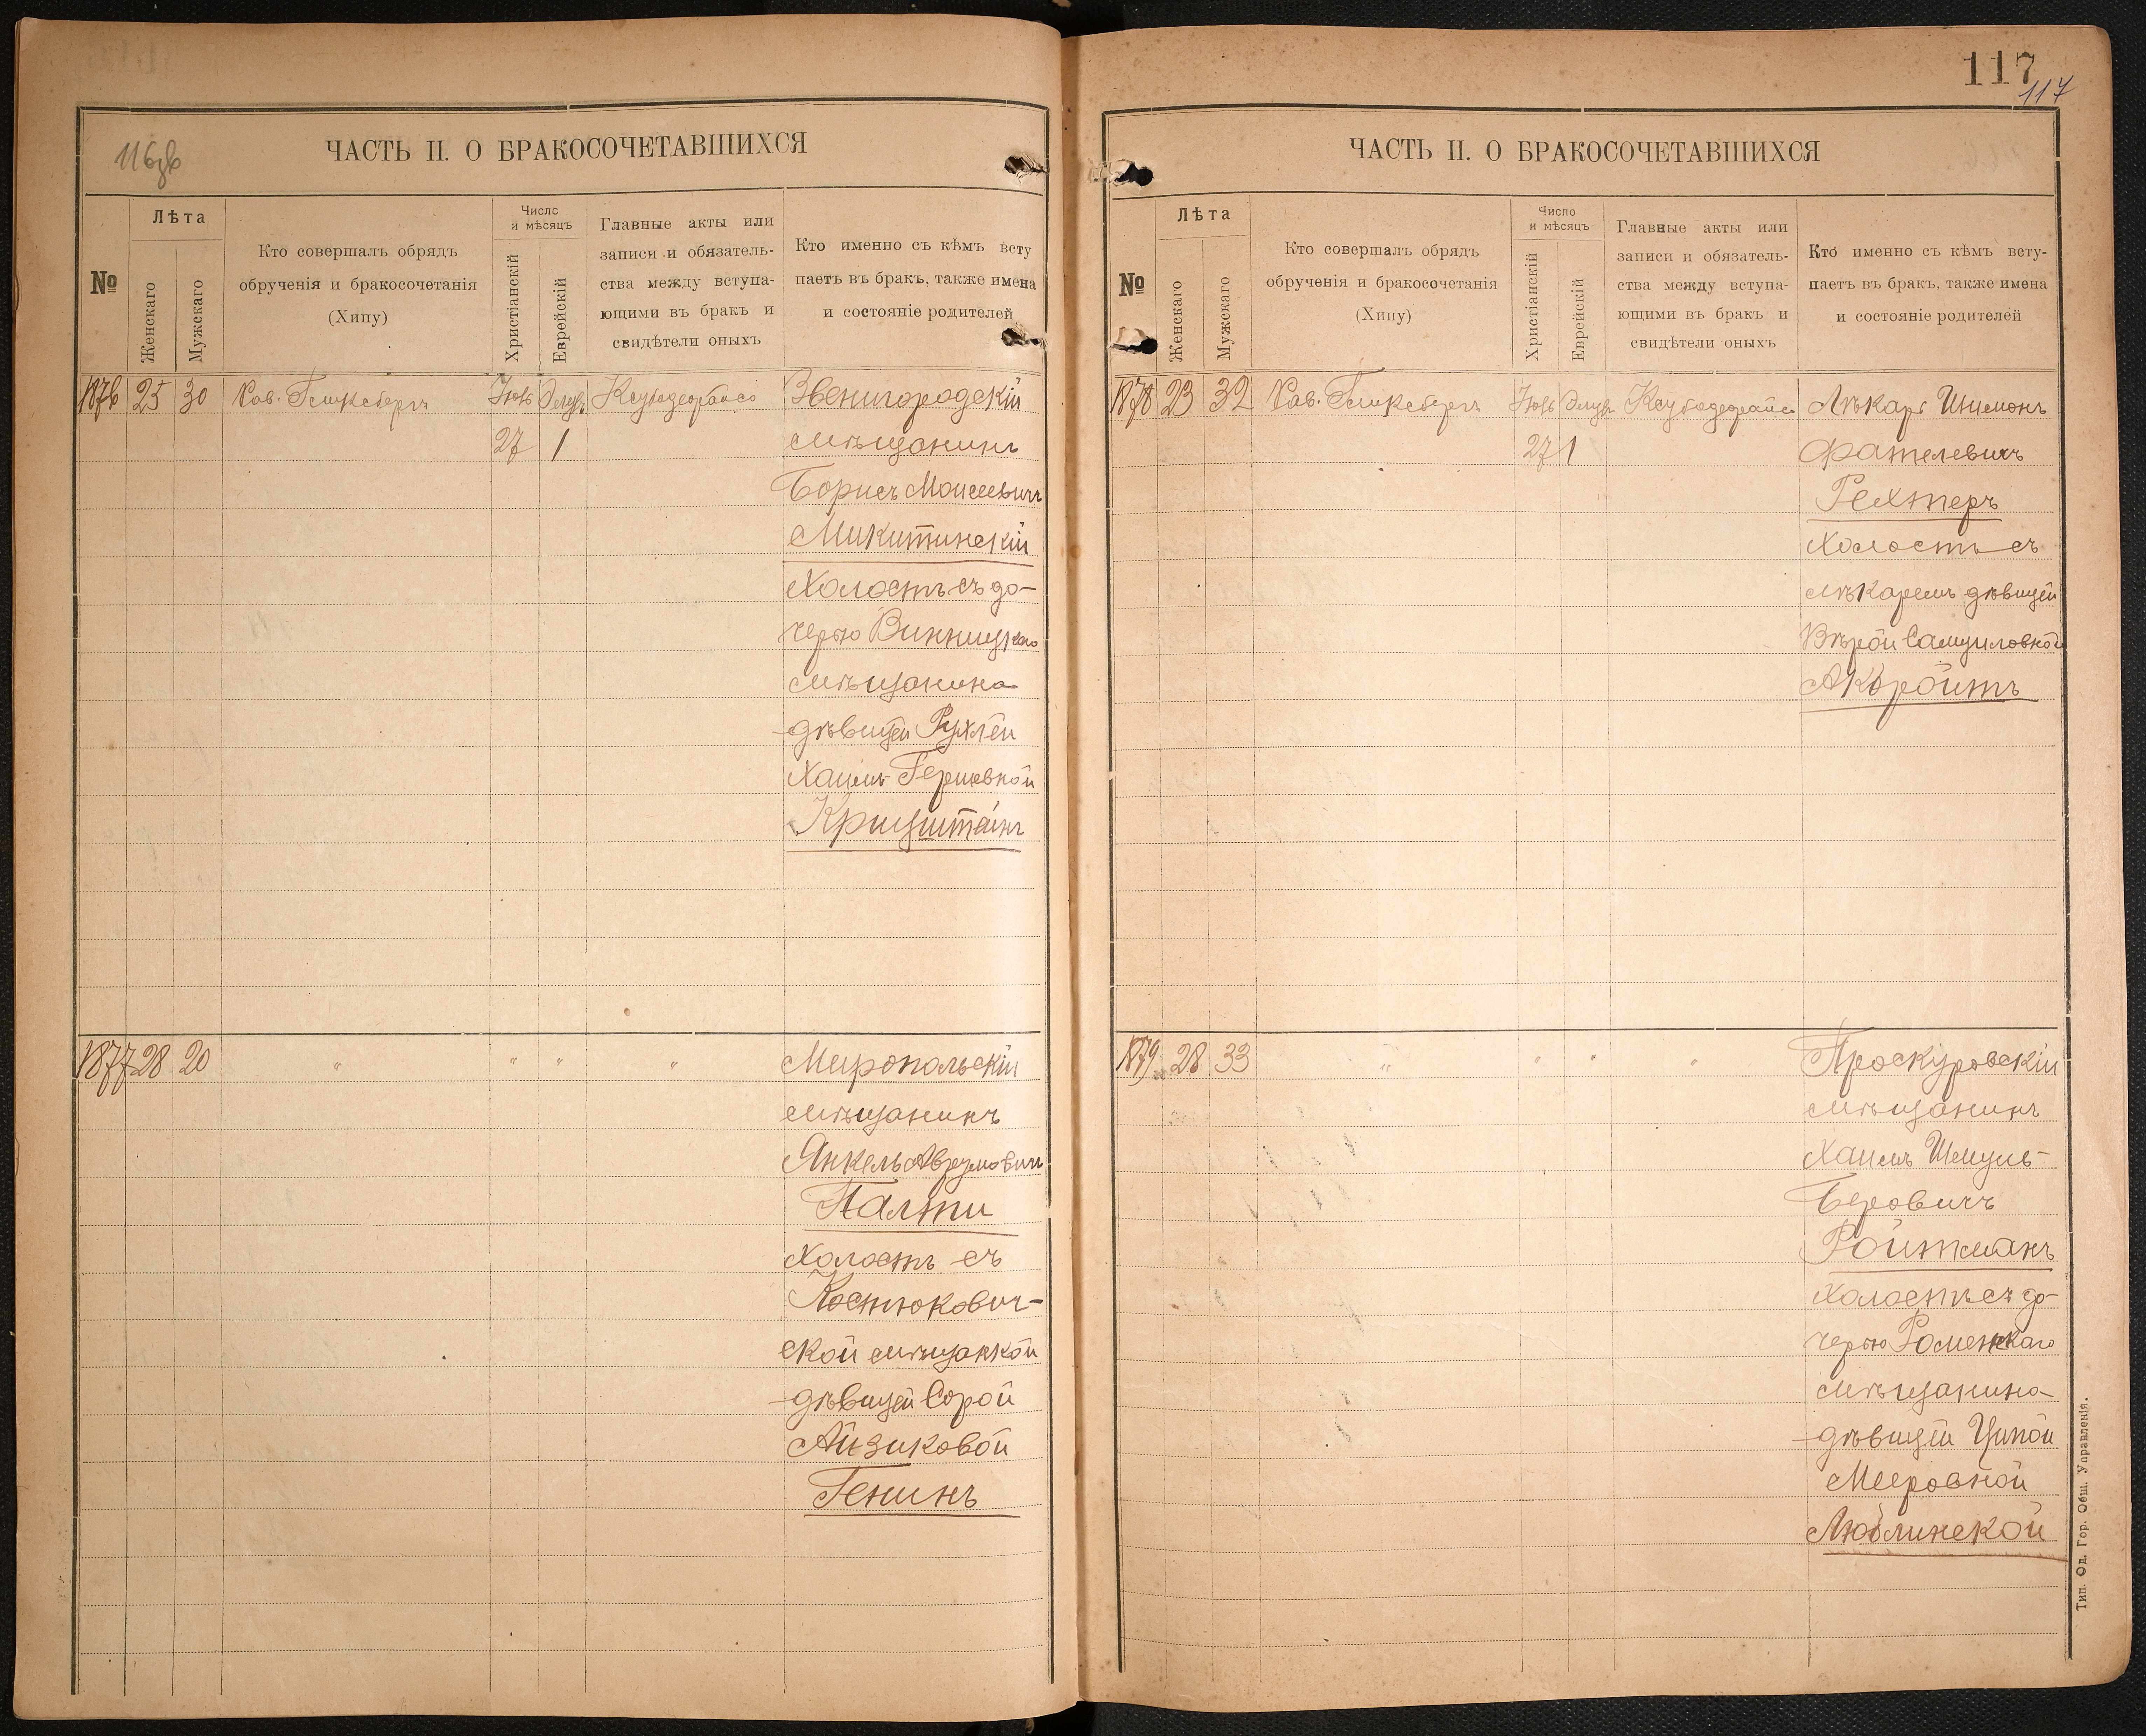 116об
ЧАСТЬ II. О БРАКОСОЧЕТАВШИХСЯ
№
Лѣта
Женскаго
Мужскаго
Кто совершалъ обрядъ
обрученія и бракосочетанія
(Хипу)
Число
и мѣсяцъ
Христіанскій
Еврейскій
Главные акты или
записи и обязатель-
ства между вступа-
ющими въ бракъ и
свидѣтели оныхъ
Кто именно съ кѣмъ всту
паетъ въ бракъ, также имена
и состояніе родителей
1876 25 30 Рав. Гликсбергъ Элулъ Звенигородскій
27 1 мѣщанинъ
Борисъ Моисеевичъ
Микитинскій
Холостъ съ до-
черью Винницкаго
мѣщанина
дѣвицей Рухлей
Хаимъ-Гершевной
Крицштейнъ
1877 28 20 " " " " Миропольскій
мѣщанинъ
Янкель Аврумовичъ
Палти
Холостъ съ
Костюкович-
ской мѣщанкой
дѣвицей Сорой
Айзиковой
Генинъ
117
117
ЧАСТЬ II. О БРАКОСОЧЕТАВШИХСЯ
№
Лѣта
Женскаго
Мужскаго
Кто совершалъ обрядъ
обрученія и бракосочетанія
(Хипу)
Число
и мѣсяцъ
Христіанскій
Еврейскій
Главные акты или
записи и обязатель-
ства между вступа-
ющими въ бракъ и
свидѣтели оныхъ
Кто именно съ кѣмъ всту-
паетъ въ бракъ, также имена
и состояніе родителей
1878 23 32 Рав. Гликсбергъ Элулъ Лѣкарь Шимонъ
27 1 Фателевичъ
Рехтеръ
Холостъ съ
лѣкаремъ дѣвицей
Вѣрой Самуиловной
Проскуровскій
1879 28 33 " " " "
мѣщанинъ
Хаимъ Шмуль-
Беровичъ
Ройтманъ
Холостъ съ до-
черью Роменскаго
мѣщанина
дѣвицей Ципой
Мееровной
Люблинской
Тип. Од. Гор. Общ. Управленія.